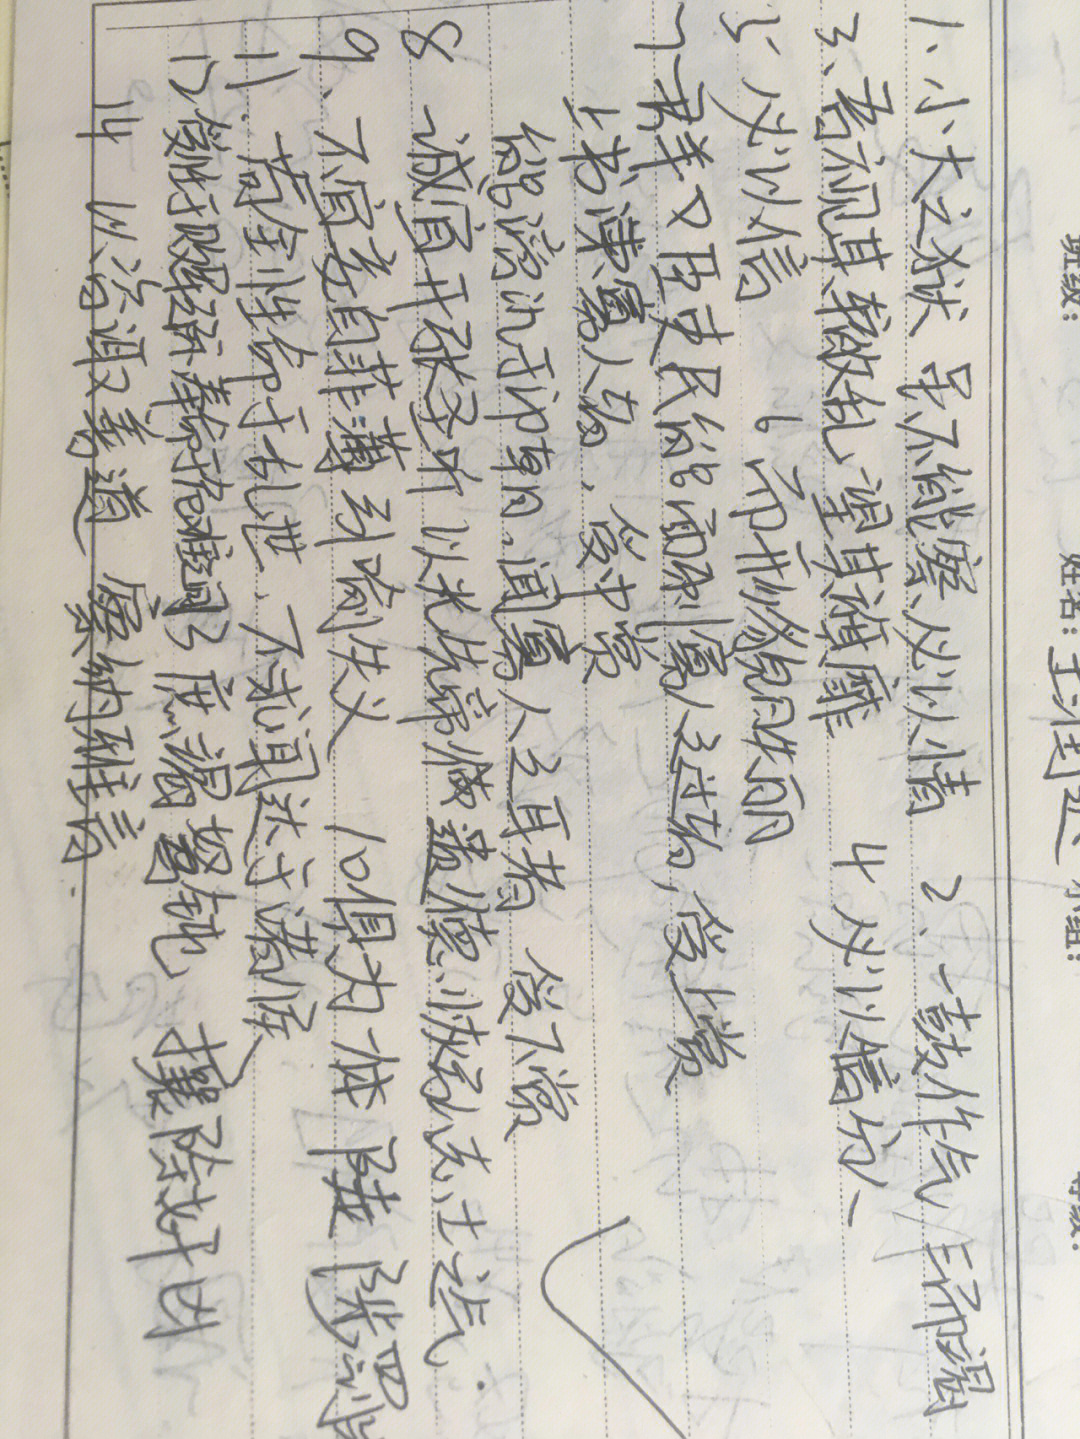 班级： 姓名：王 小组： 等级：
1、小大之狱 虽不能察必以情 2、一鼓作气 三而竭
3、吾视其辙乱 望其旗靡 4 必以情分、
5、必以信 6
7、群臣吏民能面刺寡人之过者，受上赏
上书谏寡人者，受中赏
能谤讥于市朝。闻寡人之耳者 受下赏
8、诚宜开张圣听 以光先帝遗德 恢弘志士之气.
9、不宜妄自菲薄 引喻失义 10俱为一体 陟罚
11、苟全性命于乱世、不求闻达于诸侯
奉命于危难间 庶竭驽钝 攘除奸凶
14 以咨诹善道 察纳雅言.